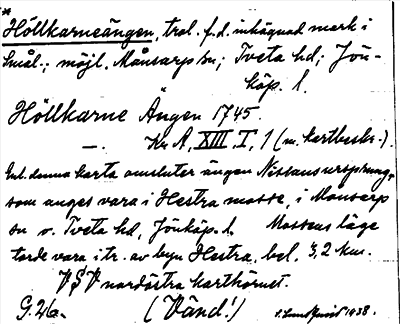 *
Höllkarneängen, trol. f.d. inhägnad mark i
Smål.; möjl. Månsarps sn; Tveta hd; Jön-
köp. l.
Höllkarne Ängen 1745.
—. Kr A, XIII T, 1 (m. kartbeskr.).
Enl. denna karta omsluter ängen Nissans ursprung,
som anges vara i Hestra mosse, i Månsarp
sn o. Tveta hd, Jönköp. l. Mossens läge
torde vara i tr. av byn Hestra, bel. 3,2 km.
VSV nordöstra karthörnet.
G. 26a. (Vänd!) 1938.